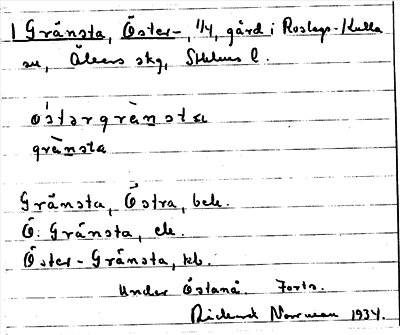 1 Gränsta, Öster-, 1/4, gård i Roslags-Kulla
sn, Åkers skg, Sthlms l.
östərgränsta
gränsta
Gränsta, Östra, bebr.
Ö. Gränsta, ek.
Öster-Gränsta, kb.
Under Östanå. Forts.
Rickard Norman 1934.